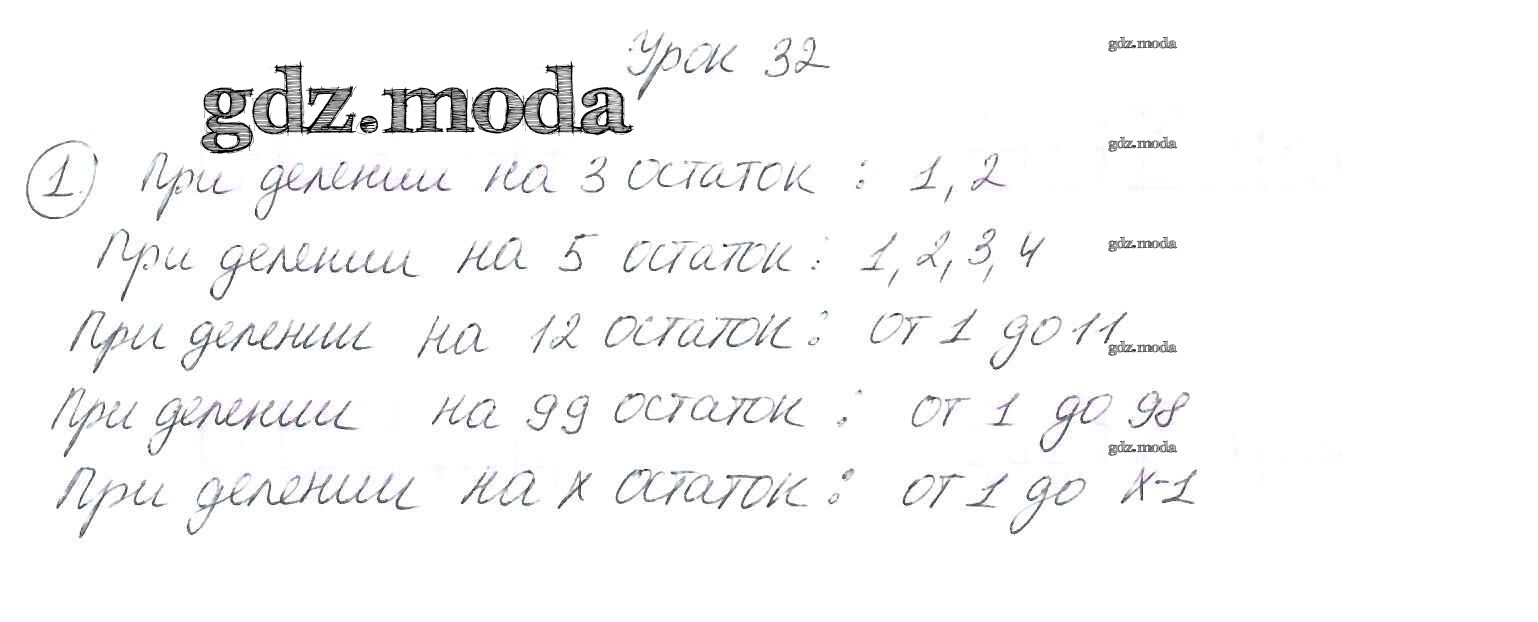 Урок 32
gdz.moda
gdz.moda
① При делении на 3 остаток : 1, 2
gdz.moda
При делении на 5 остаток : 1, 2, 3, 4
gdz.moda
При делении на 12 остаток : от 1 до 11
gdz.moda
При делении на 99 остаток : от 1 до 98
gdz.moda
При делении на x остаток : от 1 до x-1